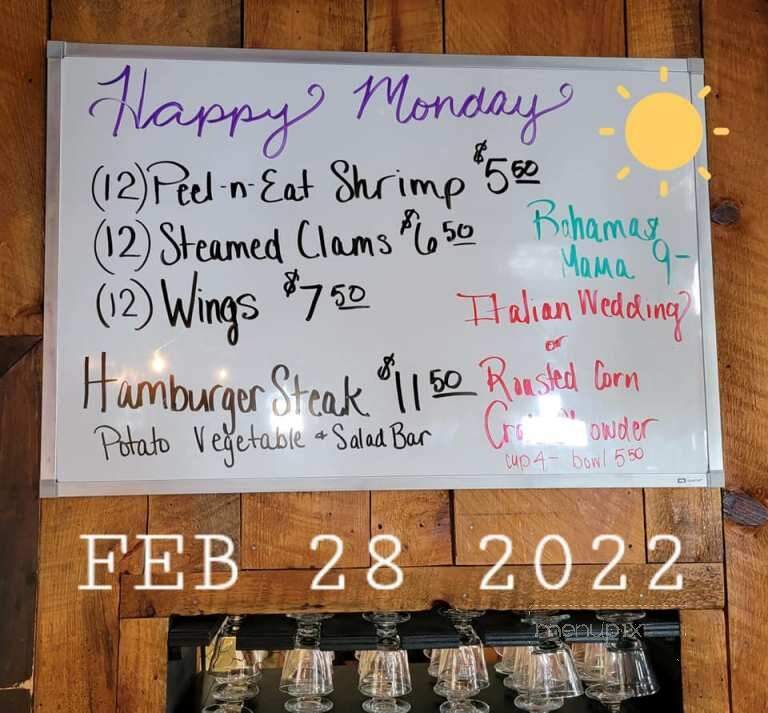 Happy Monday
(12) Peel-n-Eat Shrimp $5 50
(12) Steamed Clams $6 50
(12) Wings $7 50
Bahamas
Mama 9-
Italian Wedding
or
Roasted Corn
Chowder
cup 4- bowl 5 50
Hamburger Steak $11 50
Potato Vegetable + Salad Bar
FEB 28 2022
menupix